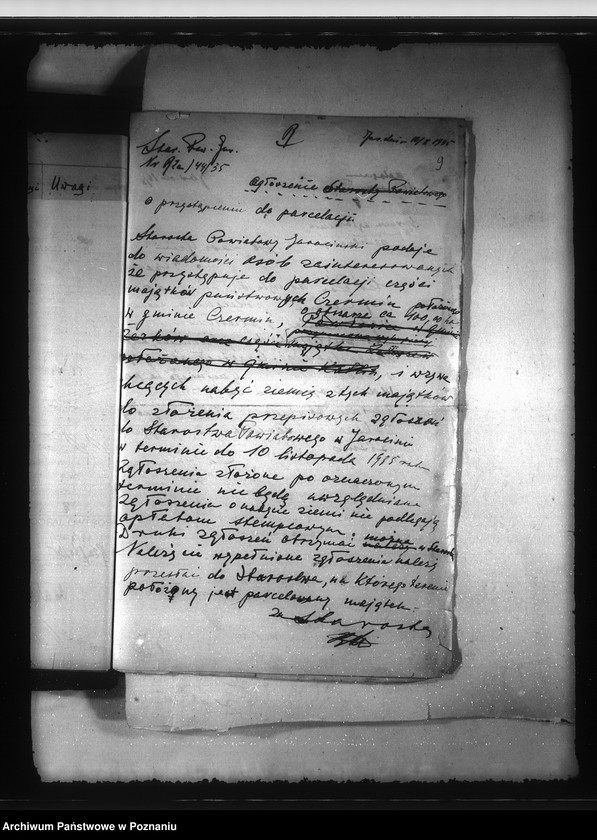 Uwagi
Star. Pow. Jar.
Nr R/2a/44/35
9
Ogłoszenie Starosty Powiatowego
o przystąpieniu do parcelacji.
Starosta Powiatowy Jarociński podaje
do wiadomości osób zainteresowanych
że przystępuje do parcelacji części
majątków państwowych Czermin położone
w gminie Czermin, o obszarze ca 100,
i wzywa
chcących nabyć ziemię z tych majątków
do złożenia przepisowych zgłoszeń
do Starostwa Powiatowego w Jarocinie
w terminie do 10 listopada 1935 roku
Zgłoszenia złożone po oznaczonym
terminie nie będą uwzględniane
Zgłoszenia o nabycie ziemi nie podlegają
opłatom stemplowym;
Druki zgłoszeń otrzymać można w Starostwie
Należycie wypełnione zgłoszenia należy
przesłać do Starostwa, na którego terenie
położony jest parcelowany majątek.
Za Starosta
Archiwum Państwowe w Poznaniu